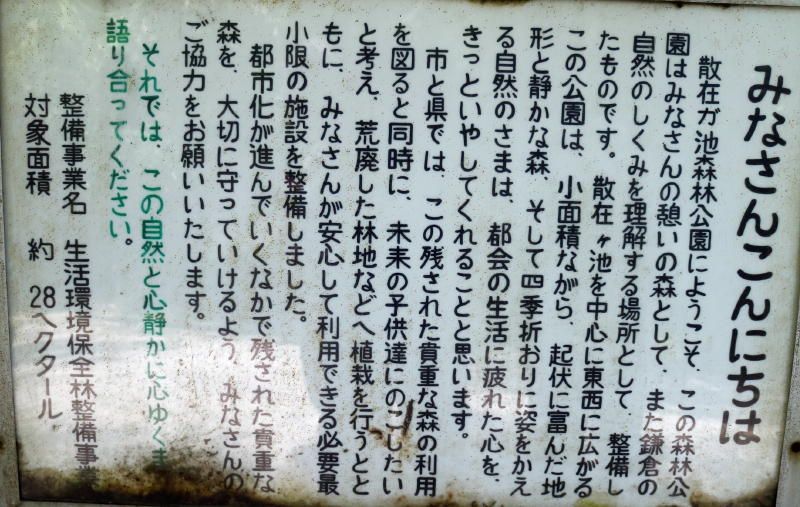 みなさんこんにちは
散在が池森林公園にようこそ、この森林公
園はみなさんの憩いの森として、また鎌倉の
自然のしくみを理解する場所として、整備し
たものです。散在ヶ池を中心に東西に広がる
この公園は、小面積ながら、起伏に富んだ地
形と静かな森、そして四季折おりに姿をかえ
る自然のさまは、都会の生活に疲れた心を、
きっといやしてくれることと思います。
市と県では、この残された貴重な森の利用
を図ると同時に、未来の子供達にのこしたい
と考え、荒廃した林地などへ植栽を行うとと
もに、みなさんが安心して利用できる必要最
小限の施設を整備しました。
都市化が進んでいくなかで残された貴重な
森を、大切に守っていけるよう、みなさんの
ご協力をお願いいたします。
それでは、この自然と心静かに心ゆくま
語り合ってください。
整備事業名 生活環境保全林整備事業
対象面積 約 28ヘクタール